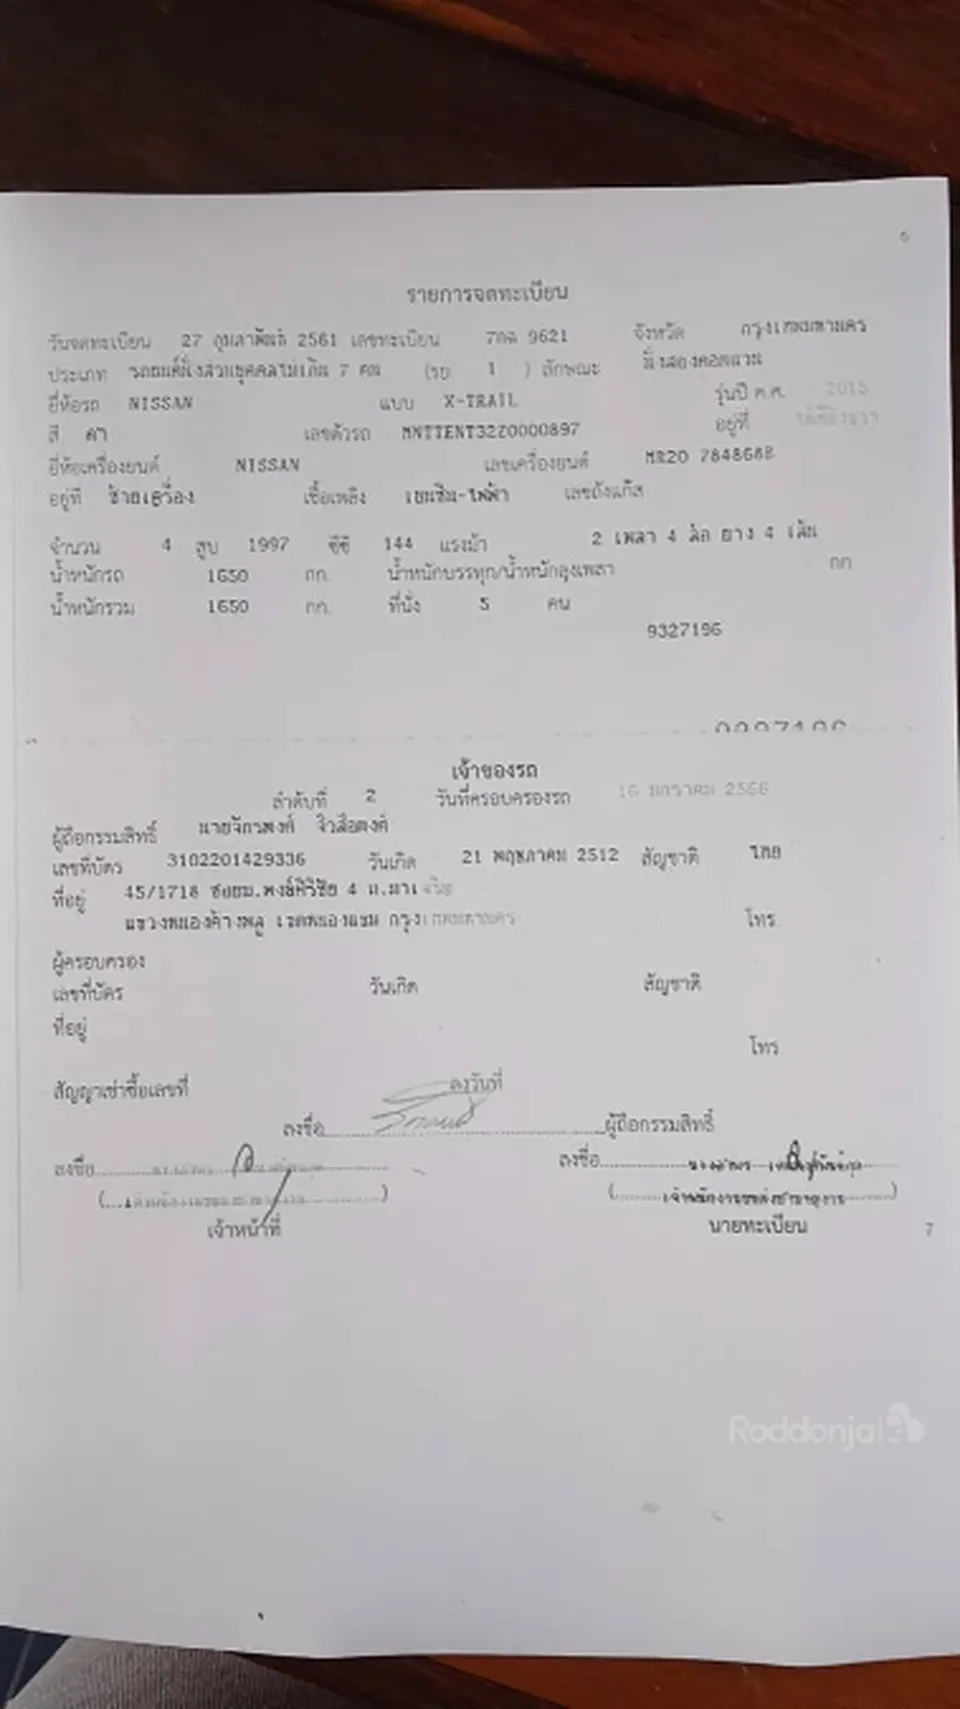 6
รายการจดทะเบียน
วันจดทะเบียน 27 กุมภาพันธ์ 2561 เลขทะเบียน 9621 จังหวัด กรุงเทพมหานคร
ประเภท รถยนต์นั่งส่วนบุคคลไม่เกิน 7 คน (รย. 1 ) ลักษณะ นั่งสองตอนแวน
ยี่ห้อรถ NISSAN แบบ X-TRAIL รุ่นปี ค.ศ. 2015
สี ดำ เลขตัวรถ MNTTENT32Z0000897 อยู่ที่
ยี่ห้อเครื่องยนต์ NISSAN เลขเครื่องยนต์ MR20 784868B
อยู่ที่ ซ้ายเครื่อง เชื้อเพลิง เบนซิน-ไฟฟ้า เลขถังแก๊ส
จำนวน 4 สูบ 1997 ซีซี 144 แรงม้า 2 เพลา 4 ล้อ ยาง 4 เส้น
น้ำหนักรถ 1650 กก. น้ำหนักบรรทุก/น้ำหนักลงเพลา กก.
น้ำหนักรวม 1650 กก. ที่นั่ง 5 คน
9327196
เจ้าของรถ
ลำดับที่ 2 วันที่ครอบครองรถ 16 มกราคม 2566
ผู้ถือกรรมสิทธิ์ นายจักรพงศ์
เลขที่บัตร 3102201429336 วันเกิด 21 พฤษภาคม 2512 สัญชาติ ไทย
ที่อยู่ 45/1718 ซอยม.พงษ์ศิริชัย 4 ถ.มาเจริญ
แขวงหนองค้างพลู เขตหนองแขม กรุงเทพมหานคร โทร.
ผู้ครอบครอง
เลขที่บัตร วันเกิด สัญชาติ
ที่อยู่
โทร.
สัญญาเช่าซื้อเลขที่ ลงวันที่
ลงชื่อ ผู้ถือกรรมสิทธิ์
ลงชื่อ ลงชื่อ
(เจ้าพนักงานขนส่งชำนาญงาน)
เจ้าหน้าที่ นายทะเบียน
7
Roddonjai